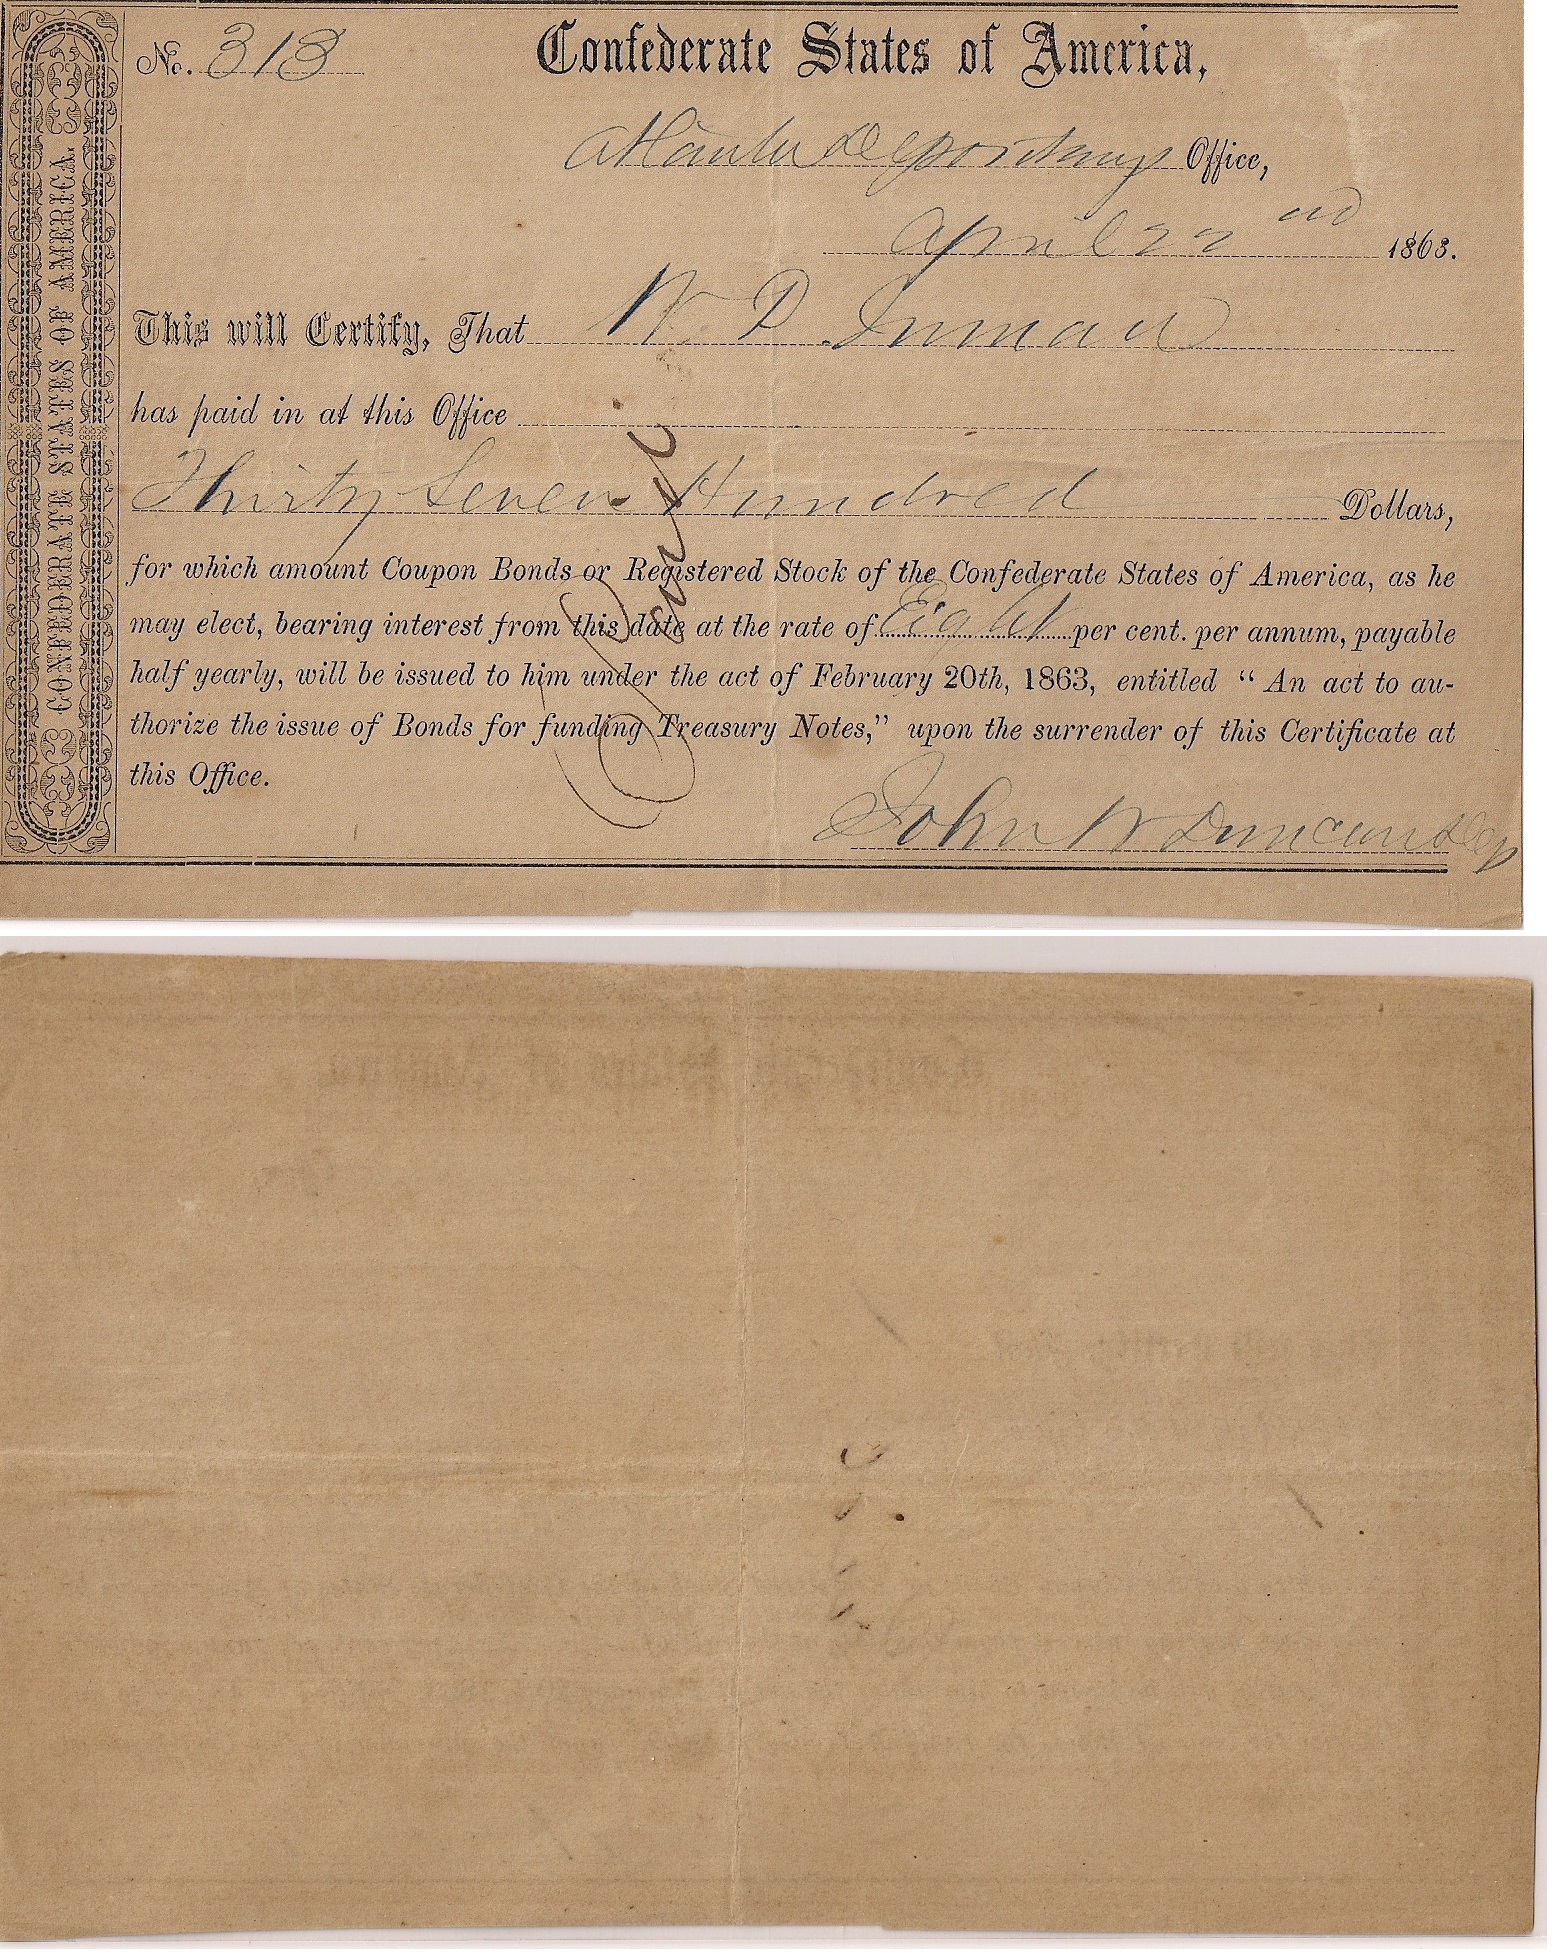 No. 313
Confederate States of America,
Atlanta Depositary Office,
April 22nd 1863.
This will Certify, That W. P. Inman
has paid in at this Office
Thirty Seven Hundred Dollars,
for which amount Coupon Bonds or Registered Stock of the Confederate States of America, as he
may elect, bearing interest from this date at the rate of Eight per cent. per annum, payable
half yearly, will be issued to him under the act of February 20th, 1863, entitled “ An act to au-
thorize the issue of Bonds for funding Treasury Notes,” upon the surrender of this Certificate at
this Office.
John W Duncan Dep
CONFEDERATE STATES OF AMERICA.